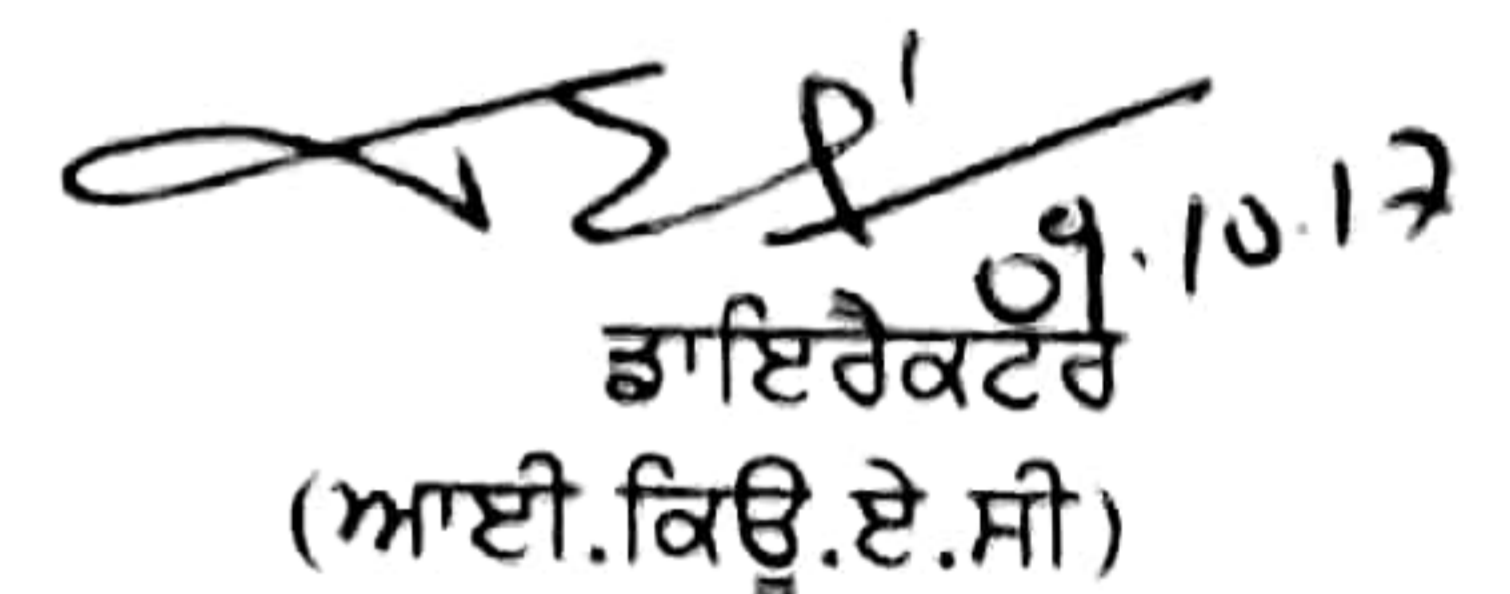 09.10.17
ਡਾਇਰੈਕਟਰ
(ਆਈ.ਕਿਊ.ਏ.ਸੀ)